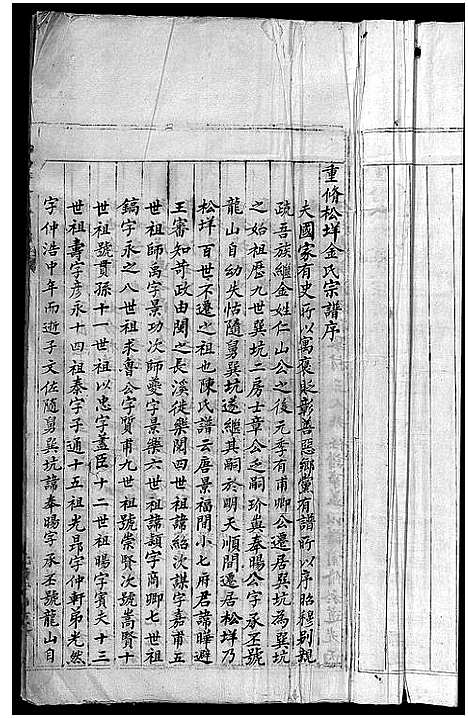 重脩松垟金氏宗譜序
夫國家有史所以寓褒貶彰善惡鄉黨有譜所以序昭穆別親
疏吾族維金姓仁山公之後元季有甫卿公遷居巽坑為巽坑
之始祖歷九世巽坑二房士章公乏嗣玠巽奉暘公字承丕號
龍山自幼失怙隨舅巽坑遂繼其嗣於明天順間遷居松垟乃
松垟百世不遷之祖也陳氏譜云唐景福間小七府君諱曄避
王審知苛政由閩之長溪徙樂閣四世祖諱紹次謀字嘉甫五
世祖師禹字景功次師夔字景樂六世祖諱頴字商卿七世祖
鎬字永之八世祖求魯公字賢甫九世祖號崇賢次號嵩賢十
世祖號貫孫十一世祖以忠字藎臣十二世祖暘字賓夫十三
世祖壽字彥永十四祖泰字子通十五祖光昂字仲軒弟光然
字仲浩中年而逝子文佐隨舅巽坑諱奉暘字承丕號龍山自